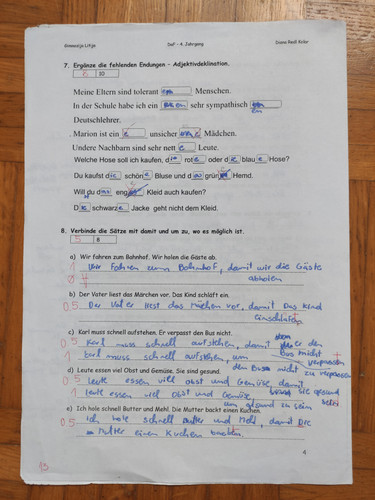 Gimnazija Litija DaF - 4. Jahrgang Diana Redl Kolar
7. Ergänze die fehlenden Endungen - Adjektivdeklination.
10
Meine Eltern sind tolerant Menschen.
In der Schule habe ich ein sehr sympathisch
Deutschlehrer.
Marion ist ein e unsicher e Mädchen.
Undere Nachbarn sind sehr nett e Leute.
Welche Hose soll ich kaufen, die rote oder die blaue Hose?
Du kaufst die schöne Bluse und d grün Hemd.
Will du d eng Kleid auch kaufen?
Die schwarze Jacke geht nicht dem Kleid.
8. Verbinde die Sätze mit damit und um zu, wo es möglich ist.
5 8
a) Wir fahren zum Bahnhof. Wir holen die Gäste ab.
1 Wir fahren zum Bahnhof, damit wir die Gäste
abholen
b) Der Vater liest das Märchen vor. Das Kind schläft ein.
0.5 Der Vater liest das Märchen vor, damit das Kind
einschlafen
c) Karl muss schnell aufstehen. Er verpasst den Bus nicht.
0.5 Karl muss schnell aufstehen, damit er den
Bus nicht verpassen
1 Karl muss schnell aufstehen, um
den Bus nicht zu verpassen
d) Leute essen viel Obst und Gemüse. Sie sind gesund.
0.5 Leute essen vill obst und Gemüse, damit
sie gesund
1 Leute essen viel Obst und Gemüse
um gesund zu sein
e) Ich hole schnell Butter und Mehl. Die Mutter backt einen Kuchen.
0.5 Ich hole schnell Butter und Mehl, damit die
Mutter einen Kuchen
4